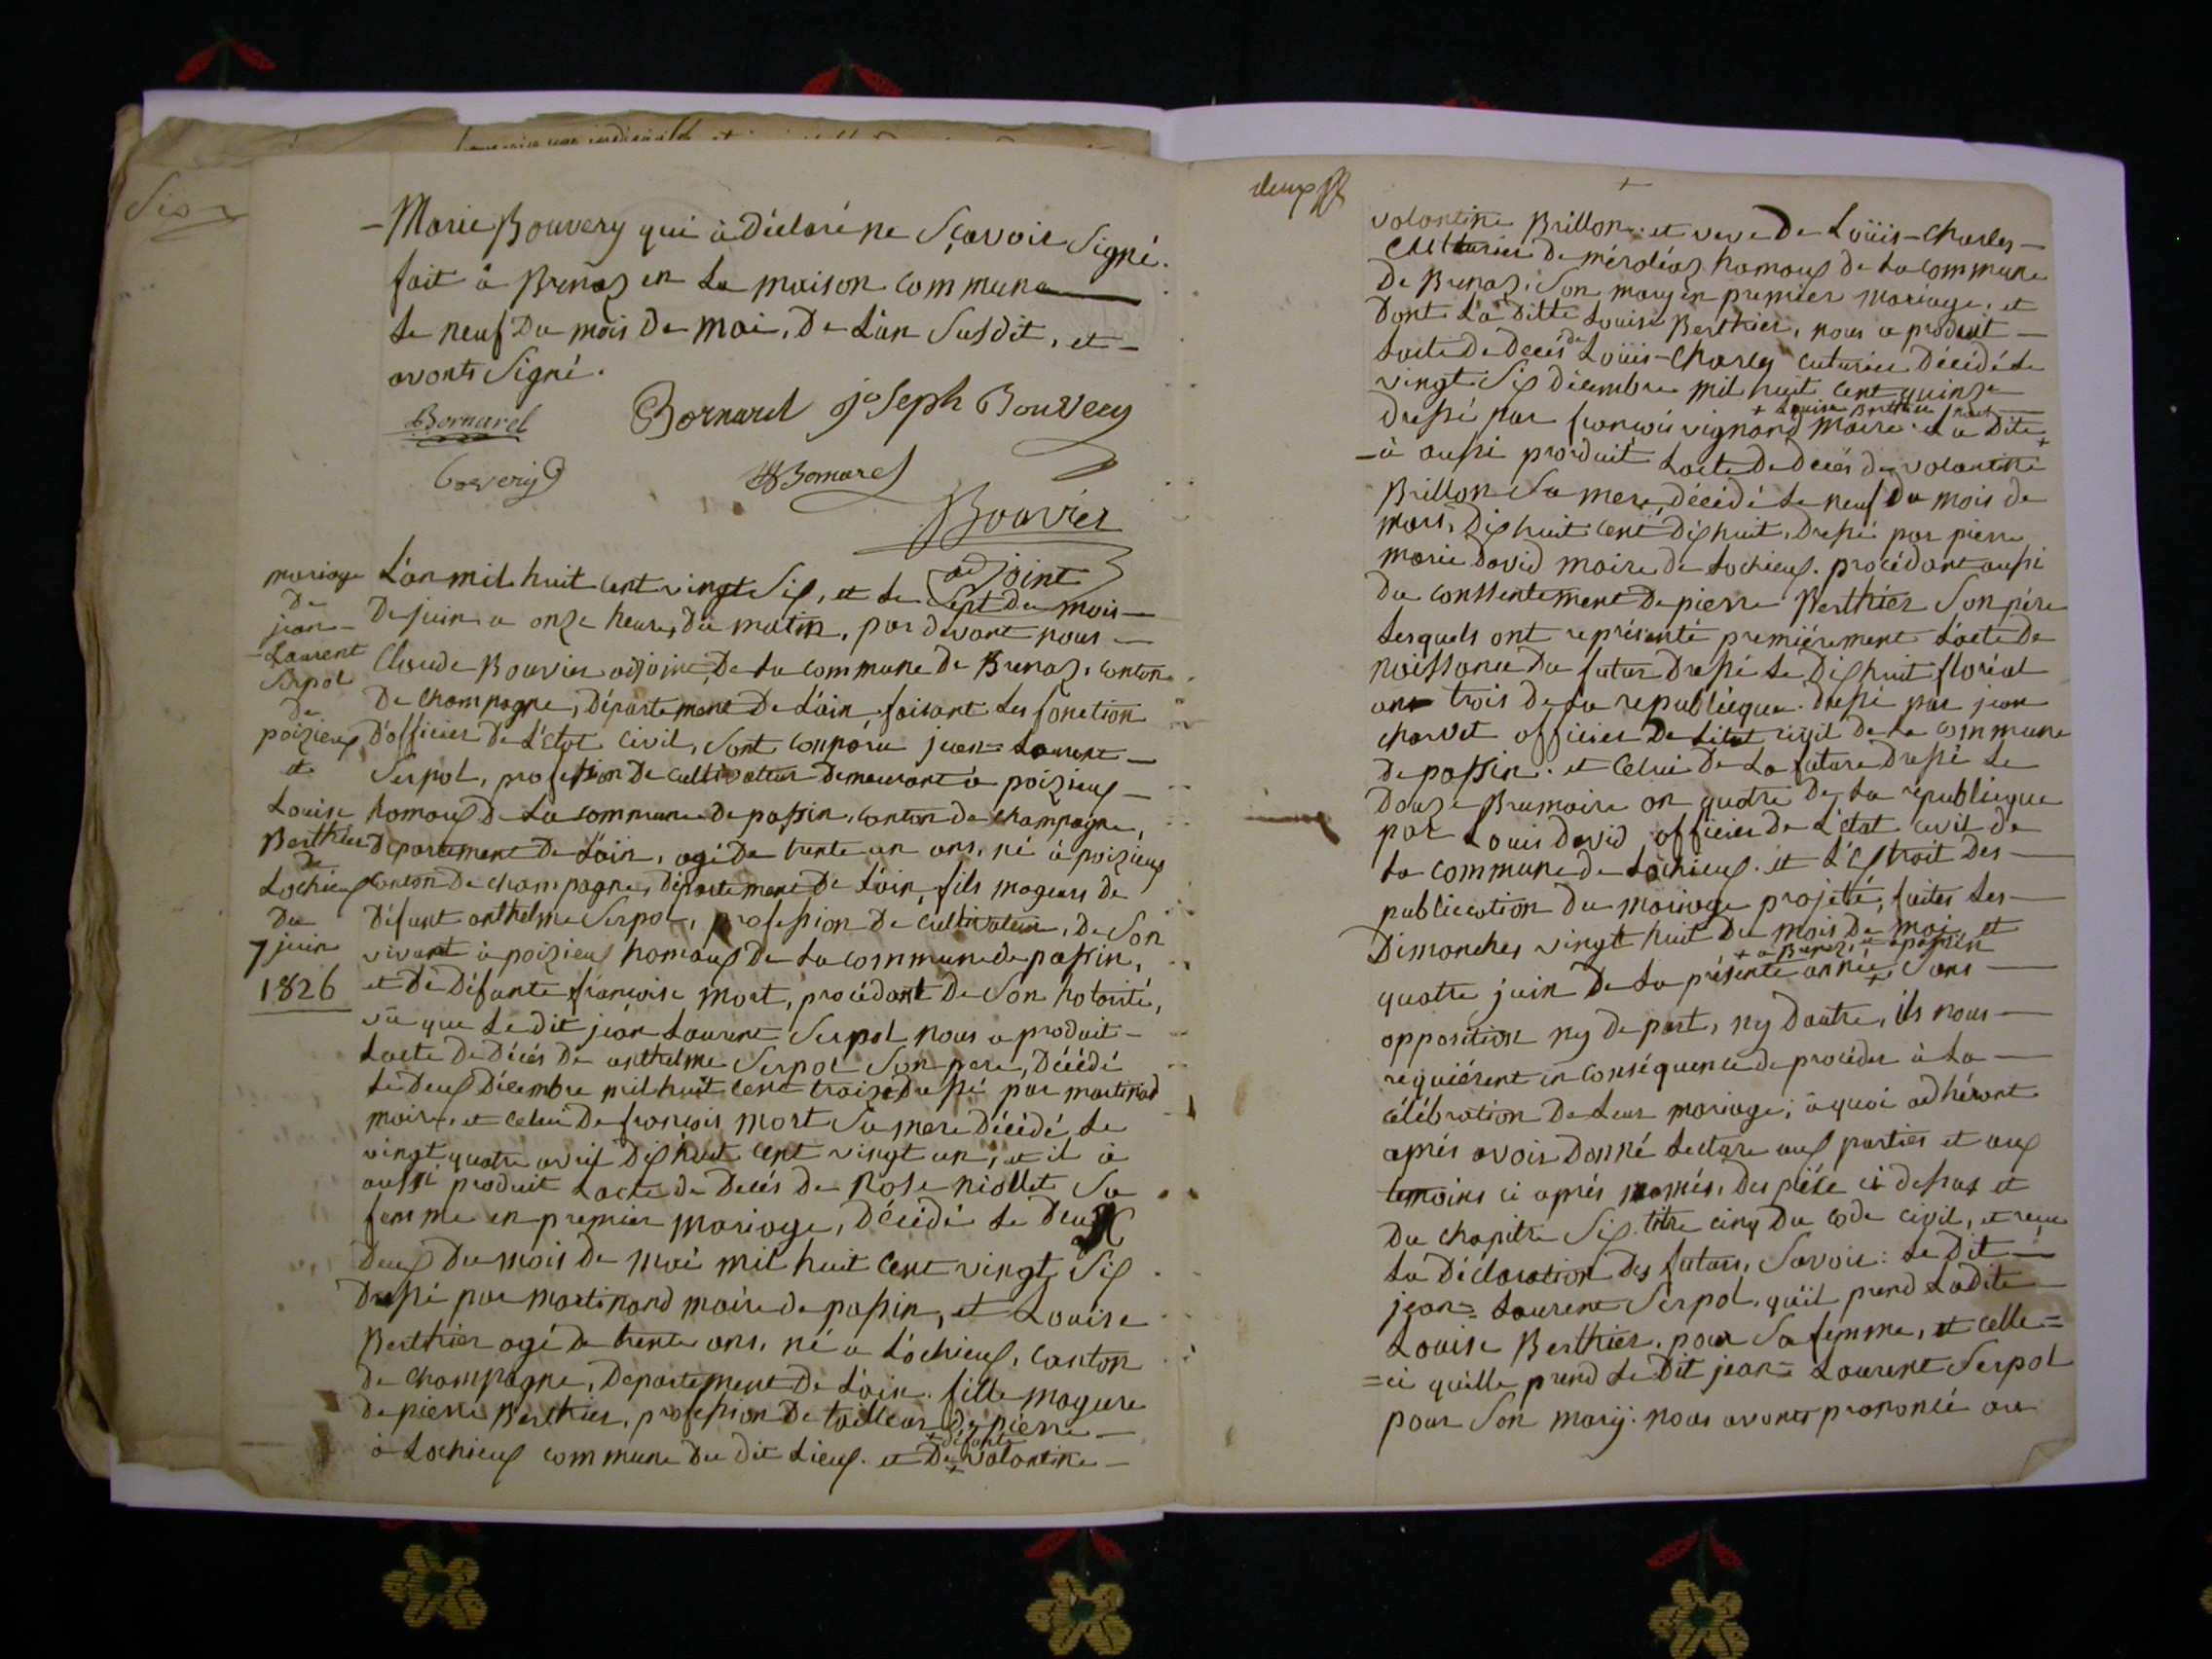 Marie Bouvery qui à déclaré ne Sçavoir Signé.
fait à Brenaz en La maison Commune
Le neuf Du mois De mai, De L'an Susdit, et
avonts Signé.
Bornarel Bornarel joseph Bouvery
Boevery Bornarel
Bouvier
adjoint
mariage
De
jean-
Laurent
Serpol
de
poizieux
et
Louise
Berthier
De
Lochieux
Du
7 juin
1826
L'an mil huit cent vingt Six, et Le Sept Du mois
De juin a onze heures du matin, par devant nous
Claude Bouvier adjoint, De La commune de Brenaz, canton
De Champagne, Département De L'ain, faisant Les fonction
D'officier De L'état Civil, Sont Comparu jean=Laurent
Serpol, profession De Cultivateur Demeurant à poizieux
hamaux De La commune De passin, canton De Champagne,
Departement De L'ain, agé De trente un ans, né à poizieux
Canton De Champagne, Département De L'ain, fils mageurs de
Défunt anthelme Serpol, profession De Cultivateur, De Son
vivant à poizieux hamaux De La commune de passin,
et De Défunte françoise Mort, procédant De Son hotorité,
vü que Le dit jean Laurent Serpol nous a produit
Lacte De Décés De anthelme Serpol Son pere, Décédé
Le Deux Décembre mil huit Cent traize Dressé par martinand
maire, et Celui De françois mort Sa mere Décédé Le
vingt quatre avril Dix huit Cent vingt un, et il à
aussi produit Lacte de Décés De Rose niollet Sa
femme en premier Mariage, Décédé Le Deux
Deux Du mois De Mai mil huit Cent vingt Six
Dressé par Martinand maire de passin, et Louise
Berthier agé De trente ans, né a Lochieux, Canton
De Champagne, Departement De L'ain. fille mageure
De pierre Berthier, profession De tailleur De pierre
+ défunte
à Lochieux commune Du Dit Lieux. et De + valantine
deux
valantine Brillon. et veve De Loüis-Charles
Cutturier De méraléaz hamaux De La Commune
De Brenaz, Son mary en premier Mariage, et
Dont La Ditte Louise Berthier, nous a produit
Lacte De Décés de Loüis-Charles Cuturier Décédé Le
vingt Six Décembre mil huit Cent quinze
+ Louise Berthier
Dressé par françois vignand Maire La Dite +
à aussi produit Lacte De Décés De valantine
Brillon Sa mere, Décédé Le neuf Du mois De
mars, Dix huit Cent Dix huit, Dressé par pierre
Marie David Maire De Lochieux. procédant aussi
Du Conssentement De pierre Berthier Son pére
Lesquels ont représenté premiérement L'acte De
naissance Du futur Dressé Le Dix huit floréal
an trois De La republieque. Dressé par jean
charvet officier De Létat civil De La Commune
De passin. et Celui De La future Dressé Le
Douze Brumaire an quatre De La republieque
par Louis David officier De L'état civil De
La Commune De Lochieux. et L'Extrait Des
publiecation Du mariage projeté, faites Les
Dimanches vingt huit Du mois De mai, et
+ a Brenaz, et à passin
quatre juin De La présente année, + Sans
opposition ny De part, ny D'autre, ils nous
requiérent en Conséquence De procéder à La
célébration De Leur mariage; à quoi adhérant
aprés avoir Donné Lecture aux parties et aux
temoins ci aprés només, Des piéce ci dessus et
Du Chapitre Six titre cinq Du code Civil, et reçu
La Déclaration Des futurs, Savoir: Le Dit
jean=Laurent Serpol, qu'il prend La dite
Louise Berthier, pour Sa femme, et celle=
=ci qu'elle prend Le Dit jean=Laurent Serpol
pour Son mary. nous avonts prononcé au